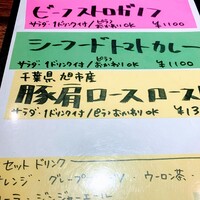 ビーフストロガノフ
サラダ・1ドリンク付/ピラフおかわりOK ¥1100
シーフードトマトカレー
サラダ・1ドリンク付/ピラフおかわりOK ¥1100
千葉県 旭市産
豚肩ロースロースト
サラダ・1ドリンク付/ピラフおかわりOK ¥13
セットドリンク
オレンジ・グレープ ・ウーロン茶・
ジンジャーエール